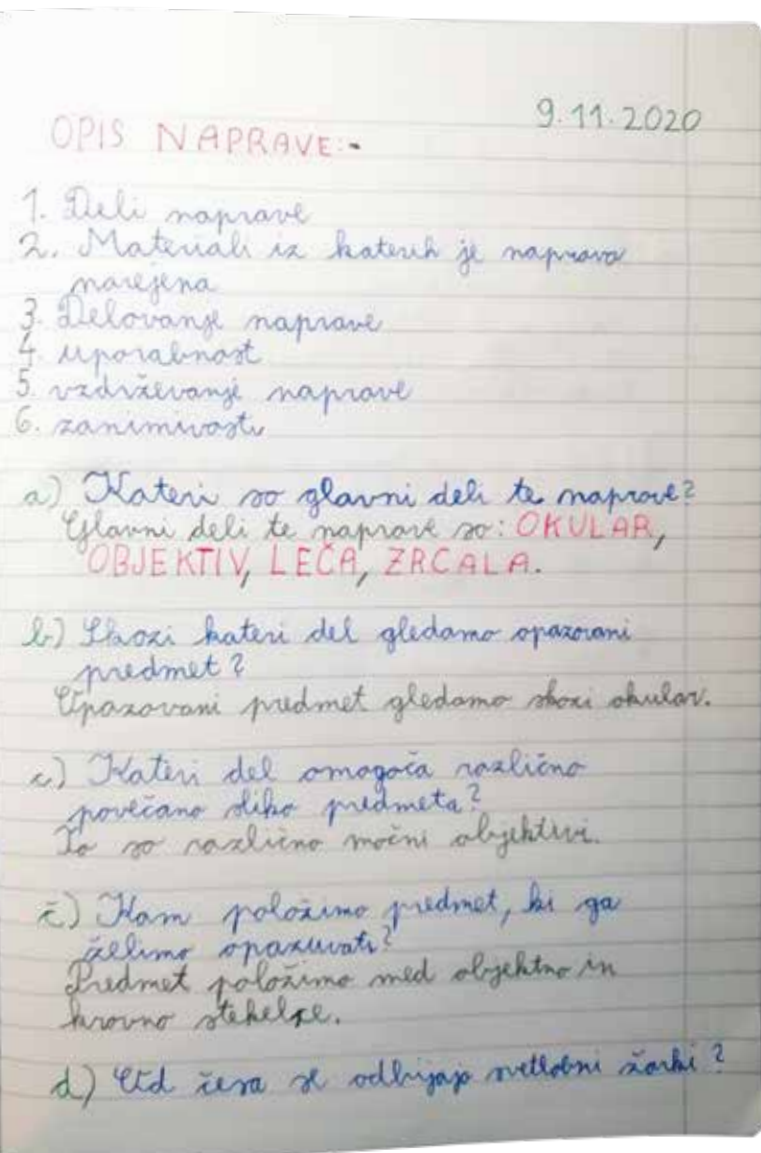 9.11.2020
OPIS NAPRAVE:-
1. Deli naprave
2. Materiali iz katerih je naprava
narejena
3. Delovanje naprave
4. uporabnost
5. vzdrževanje naprave
6. zanimivosti
a) Kateri so glavni deli te naprave?
Glavni deli te naprave so: OKULAR,
OBJEKTIV, LEČA, ZRCALA.
b) Skozi kateri del gledamo opazovani
predmet?
Opazovani predmet gledamo skozi okular.
c) Kateri del omogoča različno
povečano sliko predmeta?
To so različno močni objektivi.
č) Kam položimo predmet, ki ga
želimo opazovati?
Predmet položimo med objektno in
krovno stekelce.
d) Od česa se odbijajo svetlobni žarki?